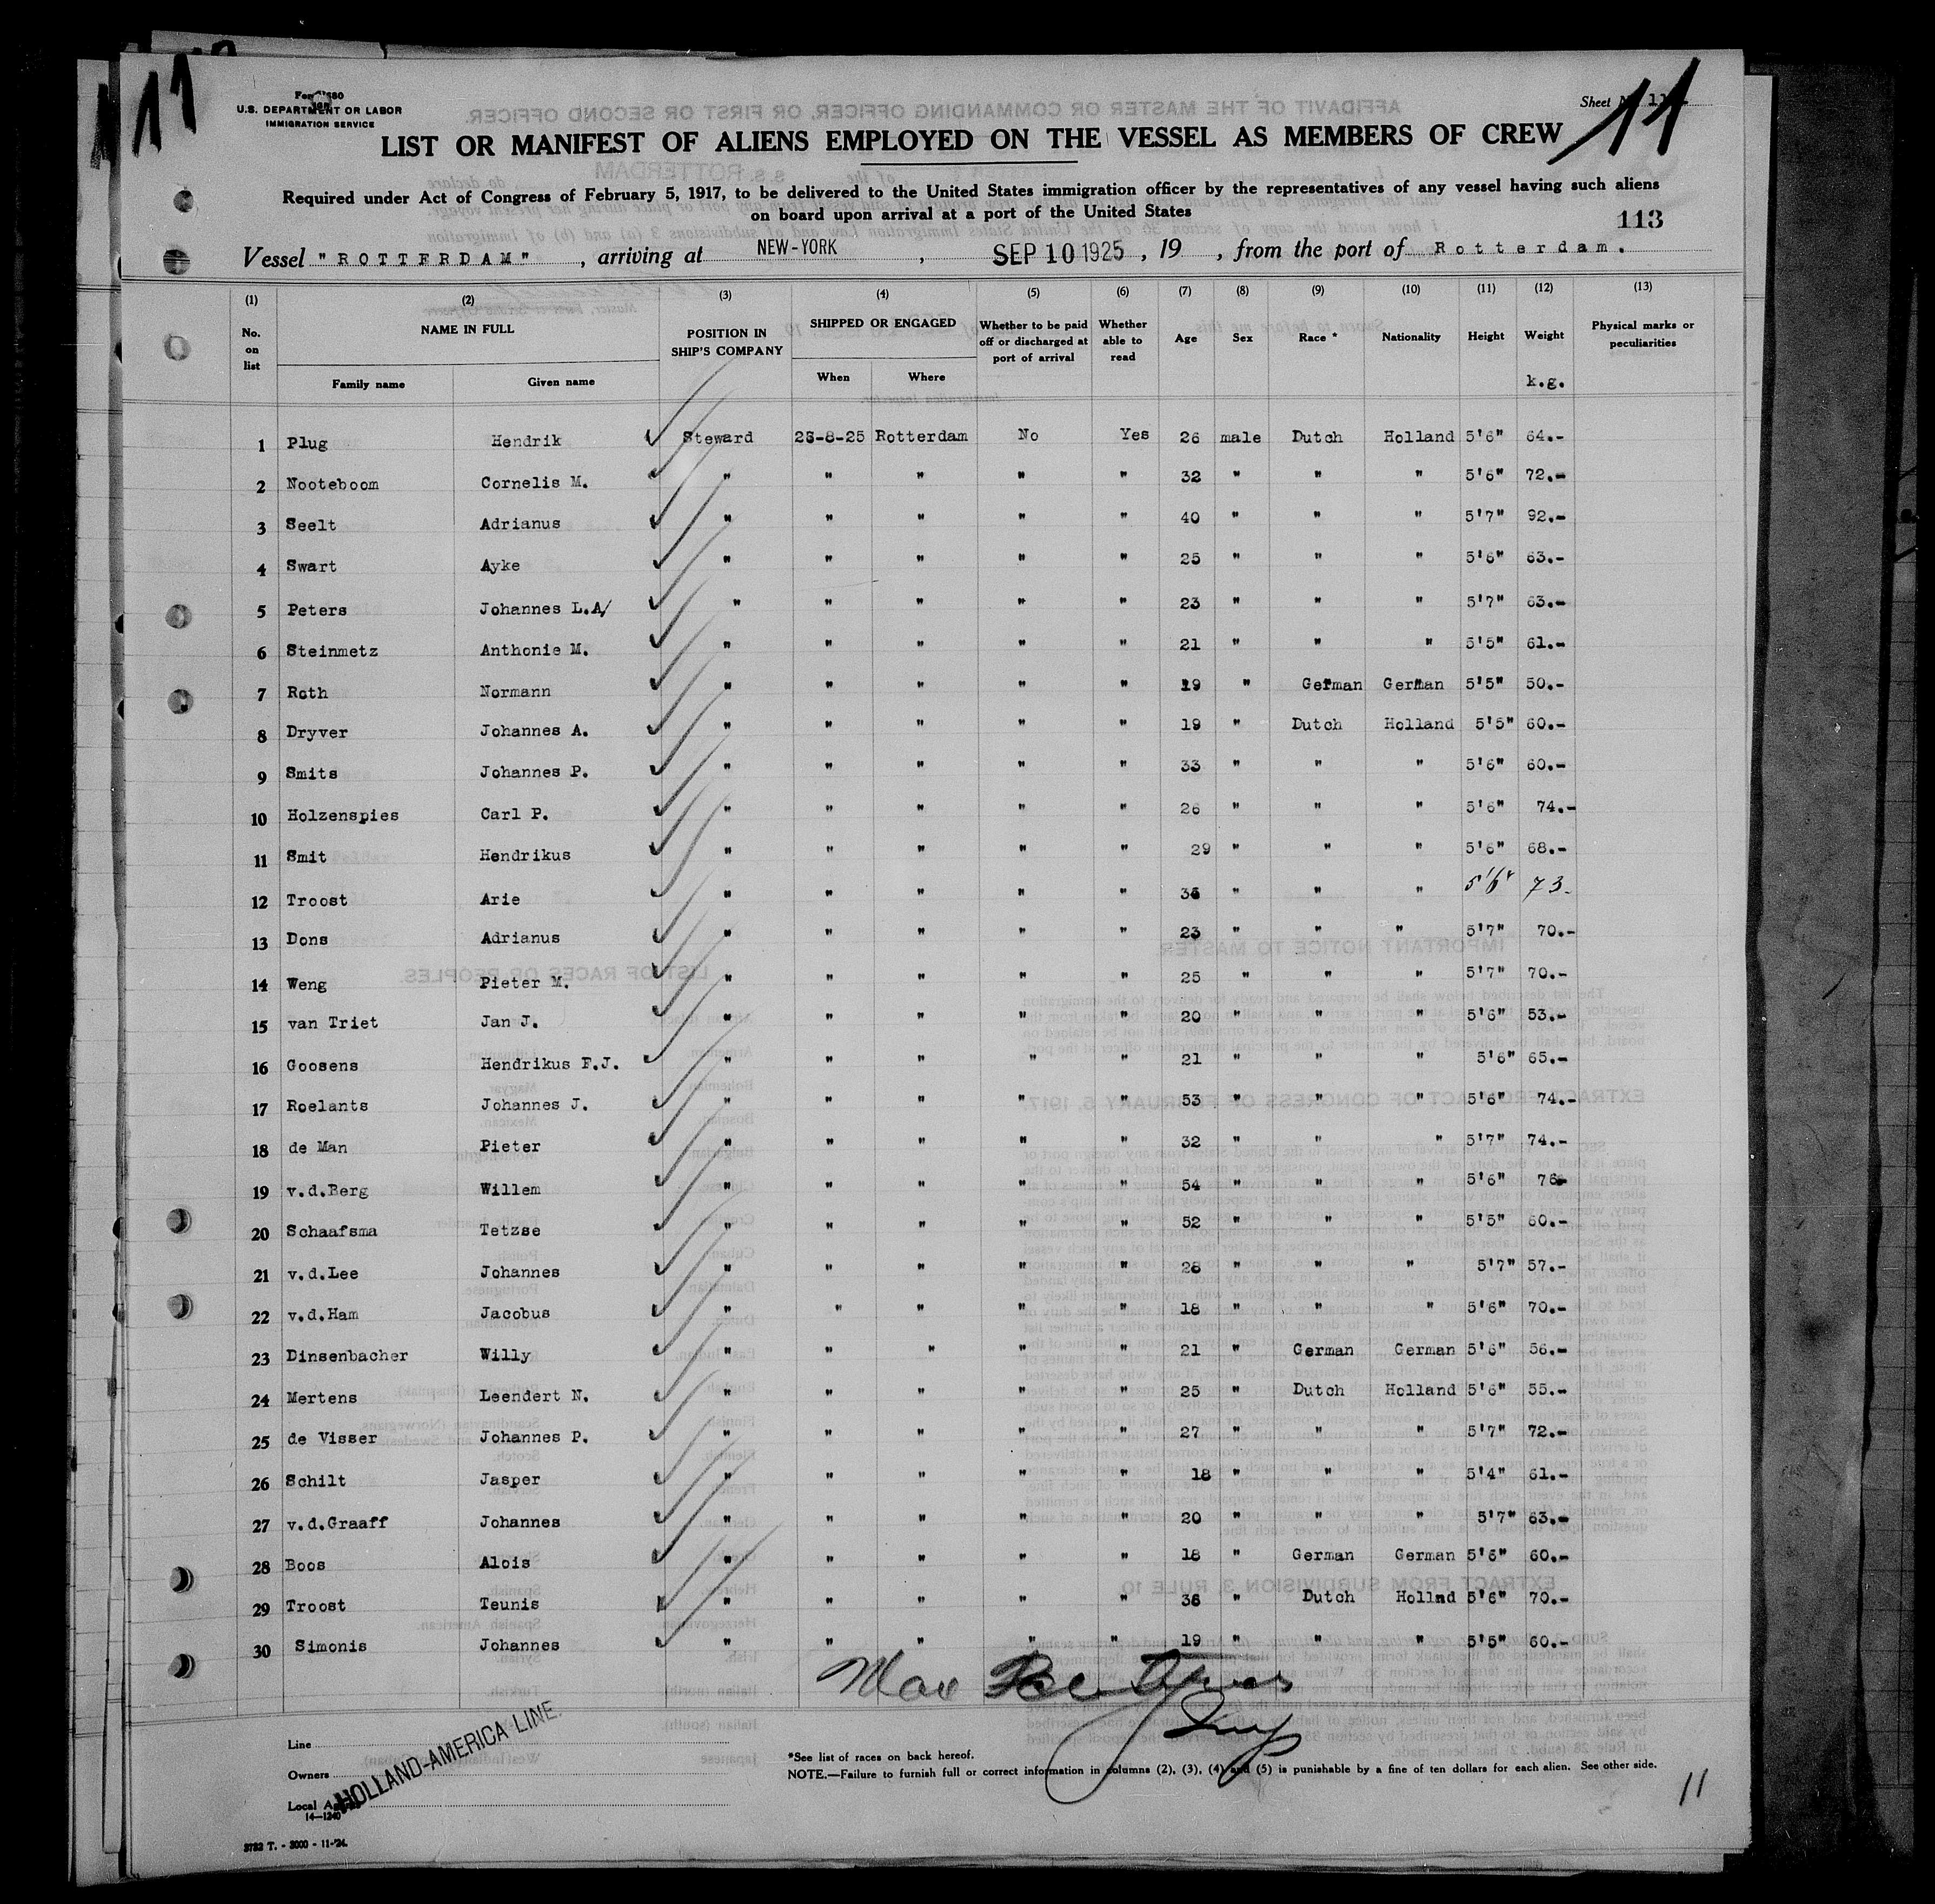 11
Form 680
U.S. DEPARTMENT OR LABOR
IMMIGRATION SERVICE
Sheet No. 11
11
LIST OR MANIFEST OF ALIENS EMPLOYED ON THE VESSEL AS MEMBERS OF CREW
Required under Act of Congress of February 5, 1917, to be delivered to the United States immigration officer by the representatives of any vessel having such aliens
on board upon arrival at a port of the United States
113
Vessel "ROTTERDAM", arriving at NEW-YORK, SEP 10 1925, 19 , from the port of Rotterdam.
(1) (2) (3) (4) (5) (6) (7) (8) (9) (10) (11) (12) (13)
No. on list NAME IN FULL POSITION IN SHIP'S COMPANY SHIPPED OR ENGAGED Whether to be paid off or discharged at port of arrival Whether able to read Age Sex Race * Nationality Height Weight Physical marks or peculiarities
Family name Given name When Where k.g.
1 Plug Hendrik Steward 26-8-25 Rotterdam No Yes 26 male Dutch Holland 5'6" 64.-
2 Nooteboom Cornelis M. " " " " " 32 " " " 5'6" 72.-
3 Seelt Adrianus " " " " " 40 " " " 5'7" 92.-
4 Swart Ayke " " " " " 25 " " " 5'6" 63.-
5 Peters Johannes L.A/ " " " " " 23 " " " 5'7" 63.-
6 Steinmetz Anthonie M. " " " " " 21 " " " 5'5" 61.-
7 Roth Normann " " " " " 19 " German German 5'5" 50.-
8 Dryver Johannes A. " " " " " 19 " Dutch Holland 5'5" 60.-
9 Smits Johannes P. " " " " " 33 " " " 5'6" 60.-
10 Holzenspies Carl P. " " " " " 26 " " " 5'6" 74.-
11 Smit Hendrikus " " " " " 29 " " " 5'6" 68.-
12 Troost Arie " " " " " 36 " " " 5'6" 73-
13 Dons Adrianus " " " " " 23 " " " 5'7" 70.-
14 Weng Pieter M. " " " " " 25 " " " 5'7" 70.-
15 van Triet Jan J. " " " " " 20 " " " 5'6" 53.-
16 Goosens Hendrikus F.J. " " " " " 21 " " " 5'6" 65.-
17 Roelants Johannes J. " " " " " 53 " " " 5'6" 74.-
18 de Man Pieter " " " " " 32 " " " 5'7" 74.-
19 v.d.Berg Willem " " " " " 54 " " " 5'6" 76-
20 Schaafsma Tetzse " " " " " 52 " " " 5'5" 60.-
21 v.d.Lee Johannes " " " " " 28 " " " 5'7" 57.-
22 v.d.Ham Jacobus " " " " " 18 " " " 5'6" 70.-
23 Dinsenbacher Willy " " " " " 21 " German German 5'6" 56.-
24 Mertens Leendert N. " " " " " 25 " Dutch Holland 5'6" 55.-
25 de Visser Johannes P. " " " " " 27 " " " 5'7" 72.-
26 Schilt Jasper " " " " " 18 " " " 5'4" 61.-
27 v.d.Graaff Johannes " " " " " 20 " " " 5'7" 63.-
28 Boos Alois " " " " " 18 " German German 5'6" 60.-
29 Troost Teunis " " " " " 36 " Dutch Hollnd 5'6" 70.-
30 Simonis Johannes " " " " " 19 " " " 5'5" 60.-
Line
Owners
Local Agents
HOLLAND-AMERICA LINE.
14-1240
*See list of races on back hereof.
NOTE.—Failure to furnish full or correct information in columns (2), (3), (4) and (5) is punishable by a fine of ten dollars for each alien. See other side.
11
3782 T. - 3000 - 11-'24.